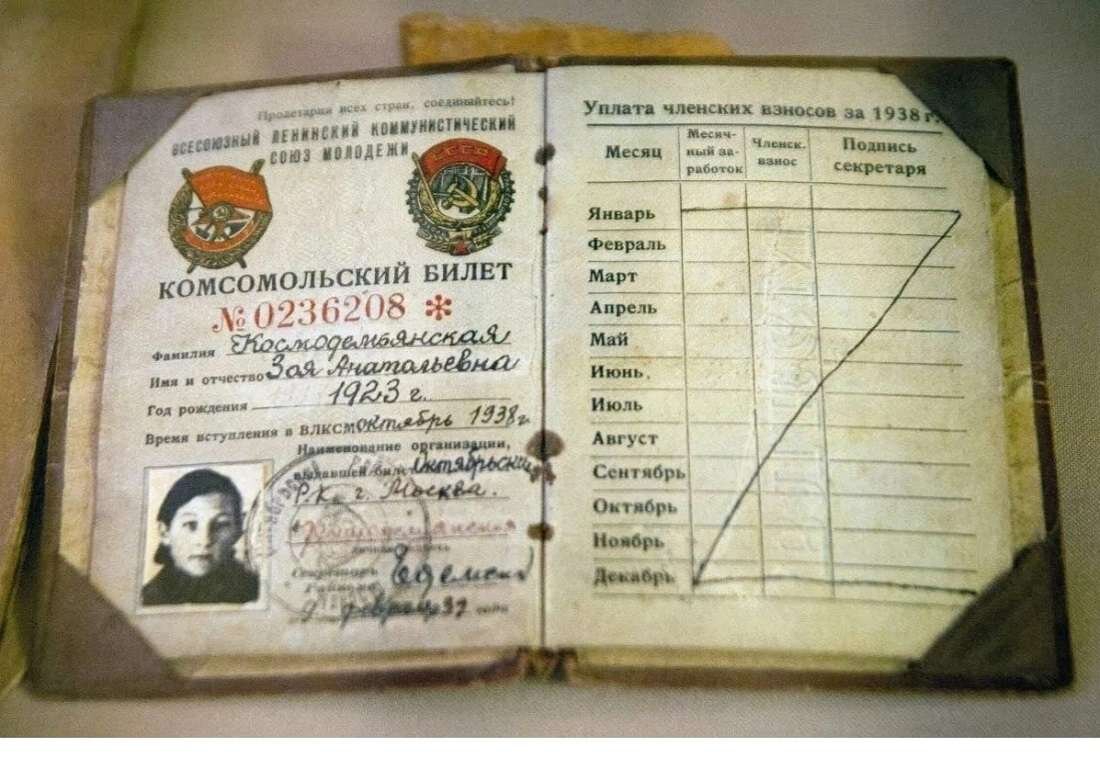 Пролетарии всех стран, соединяйтесь!
ВСЕСОЮЗНЫЙ ЛЕНИНСКИЙ КОММУНИСТИЧЕСКИЙ
СОЮЗ МОЛОДЕЖИ
СССР
КОМСОМОЛЬСКИЙ БИЛЕТ
№ 0236208 *
Фамилия Космодемьянская
Имя и отчество Зоя Анатольевна
Год рождения 1923 г.
Время вступления в ВЛКСМ октябрь 1938 г
Наименование организации,
выдавшей билет Октябрьский
Р.К. г. Москва.
Космодемьянская
личная подпись
Секретарь
Райкома
9 февраля 39 года
Уплата членских взносов за 1938 г.
Месяц
Месяч-
ный за-
работок
Членск.
взнос
Подпись
секретаря
Январь
Февраль
Март
Апрель
Май
Июнь
Июль
Август
Сентябрь
Октябрь
Ноябрь
Декабрь